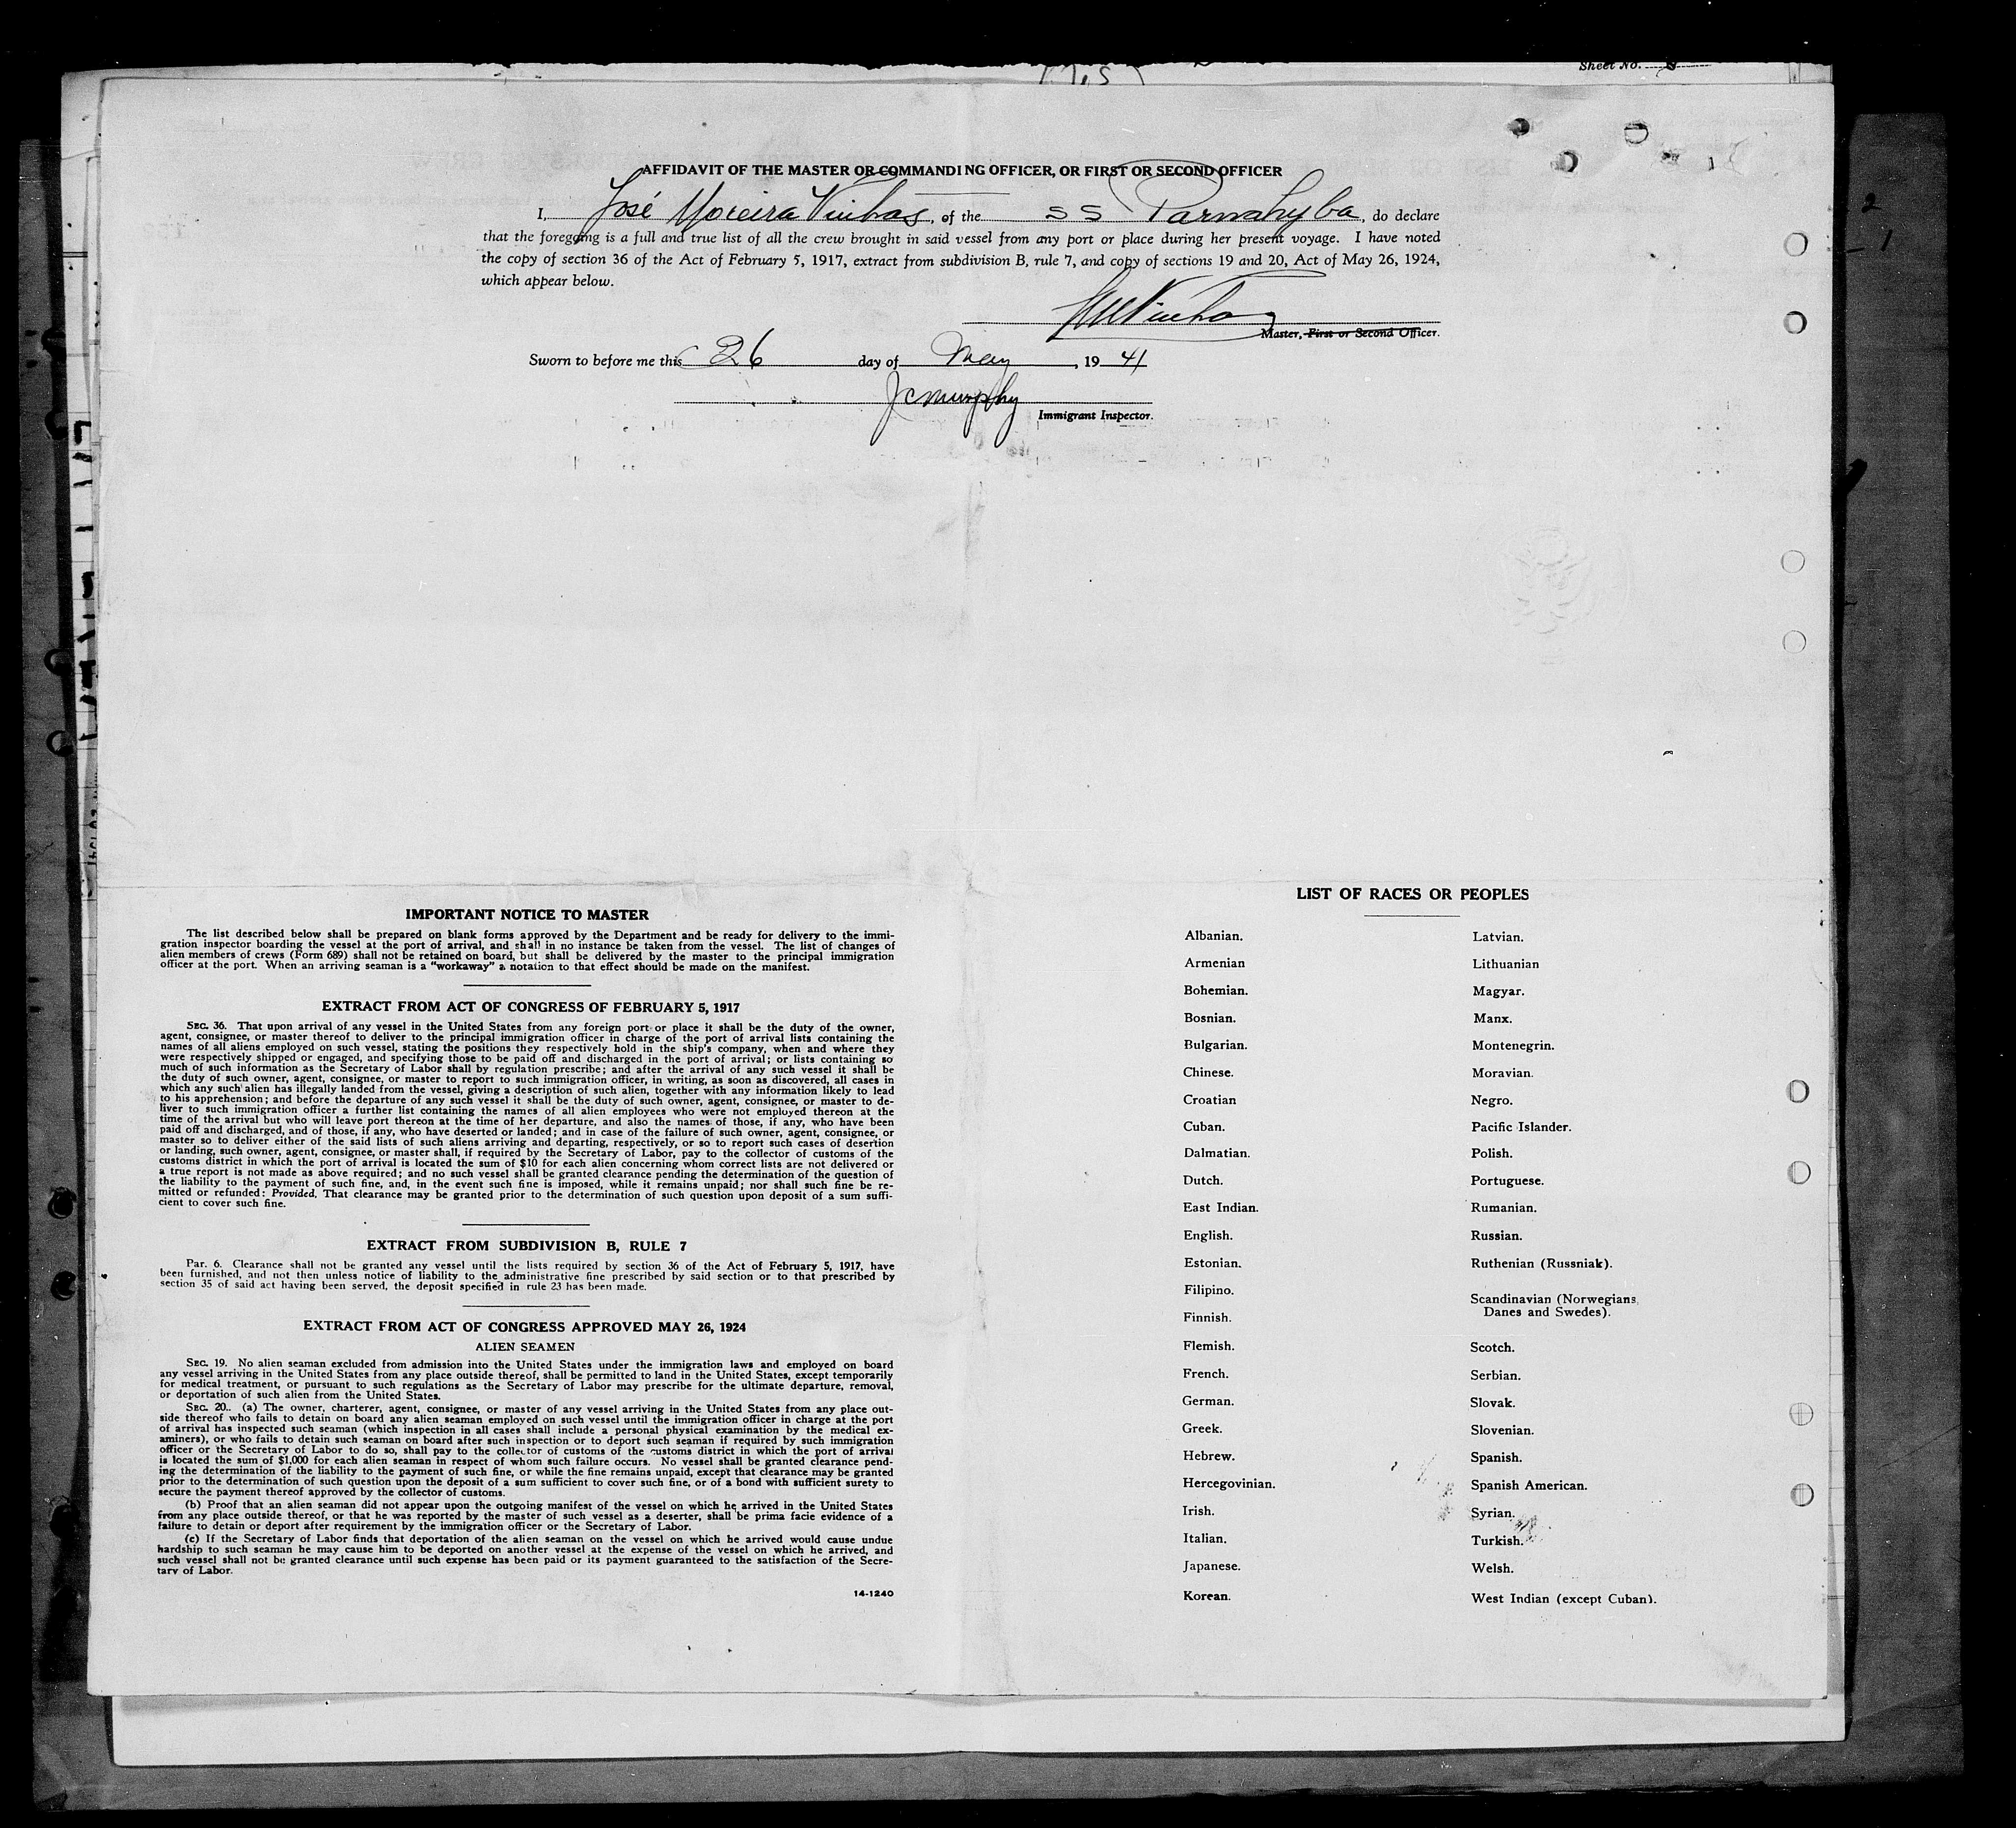 Sheet No.
AFFIDAVIT OF THE MASTER OR COMMANDING OFFICER, OR FIRST OR SECOND OFFICER
I, José Moreira Vinhas, of the SS Parnahyba, do declare
that the foregoing is a full and true list of all the crew brought in said vessel from any port or place during her present voyage. I have noted
the copy of section 36 of the Act of February 5, 1917, extract from subdivision B, rule 7, and copy of sections 19 and 20, Act of May 26, 1924,
which appear below.
Master, First or Second Officer.
Sworn to before me this 26 day of May, 19 41
JC Murphy
Immigrant Inspector.
IMPORTANT NOTICE TO MASTER
The list described below shall be prepared on blank forms approved by the Department and be ready for delivery to the immi-
gration inspector boarding the vessel at the port of arrival, and shall in no instance be taken from the vessel. The list of changes of
alien members of crews (Form 689) shall not be retained on board, but shall be delivered by the master to the principal immigration
officer at the port. When an arriving seaman is a "workaway" a notation to that effect should be made on the manifest.
EXTRACT FROM ACT OF CONGRESS OF FEBRUARY 5, 1917
SEC. 36. That upon arrival of any vessel in the United States from any foreign port or place it shall be the duty of the owner,
agent, consignee, or master thereof to deliver to the principal immigration officer in charge of the port of arrival lists containing the
names of all aliens employed on such vessel, stating the positions they respectively hold in the ship's company, when and where they
were respectively shipped or engaged, and specifying those to be paid off and discharged in the port of arrival; or lists containing so
much of such information as the Secretary of Labor shall by regulation prescribe; and after the arrival of any such vessel it shall be
the duty of such owner, agent, consignee, or master to report to such immigration officer, in writing, as soon as discovered, all cases in
which any such alien has illegally landed from the vessel, giving a description of such alien, together with any information likely to lead
to his apprehension; and before the departure of any such vessel it shall be the duty of such owner, agent, consignee, or master to de-
liver to such immigration officer a further list containing the names of all alien employees who were not employed thereon at the
time of the arrival but who will leave port thereon at the time of her departure, and also the names of those, if any, who have been
paid off and discharged, and of those, if any, who have deserted or landed; and in case of the failure of such owner, agent, consignee, or
master so to deliver either of the said lists of such aliens arriving and departing, respectively, or so to report such cases of desertion
or landing, such owner, agent, consignee, or master shall, if required by the Secretary of Labor, pay to the collector of customs of the
customs district in which the port of arrival is located the sum of $10 for each alien concerning whom correct lists are not delivered or
a true report is not made as above required; and no such vessel shall be granted clearance pending the determination of the question of
the liability to the payment of such fine, and, in the event such fine is imposed, while it remains unpaid; nor shall such fine be re-
mitted or refunded: Provided, That clearance may be granted prior to the determination of such question upon deposit of a sum suffi-
cient to cover such fine.
EXTRACT FROM SUBDIVISION B, RULE 7
Par. 6. Clearance shall not be granted any vessel until the lists required by section 36 of the Act of February 5, 1917, have
been furnished, and not then unless notice of liability to the administrative fine prescribed by said section or to that prescribed by
section 35 of said act having been served, the deposit specified in rule 23 has been made.
EXTRACT FROM ACT OF CONGRESS APPROVED MAY 26, 1924
ALIEN SEAMEN
SEC. 19. No alien seaman excluded from admission into the United States under the immigration laws and employed on board
any vessel arriving in the United States from any place outside thereof, shall be permitted to land in the United States, except temporarily
for medical treatment, or pursuant to such regulations as the Secretary of Labor may prescribe for the ultimate departure, removal,
or deportation of such alien from the United States.
SEC. 20. (a) The owner, charterer, agent, consignee, or master of any vessel arriving in the United States from any place out-
side thereof who fails to detain on board any alien seaman employed on such vessel until the immigration officer in charge at the port
of arrival has inspected such seaman (which inspection in all cases shall include a personal physical examination by the medical ex-
aminers), or who fails to detain such seaman on board after such inspection or to deport such seaman if required by such immigration
officer or the Secretary of Labor to do so, shall pay to the collector of customs of the customs district in which the port of arrival
is located the sum of $1,000 for each alien seaman in respect of whom such failure occurs. No vessel shall be granted clearance pend-
ing the determination of the liability to the payment of such fine, or while the fine remains unpaid, except that clearance may be granted
prior to the determination of such question upon the deposit of a sum sufficient to cover such fine, or of a bond with sufficient surety to
secure the payment thereof approved by the collector of customs.
(b) Proof that an alien seaman did not appear upon the outgoing manifest of the vessel on which he arrived in the United States
from any place outside thereof, or that he was reported by the master of such vessel as a deserter, shall be prima facie evidence of a
failure to detain or deport after requirement by the immigration officer or the Secretary of Labor.
(c) If the Secretary of Labor finds that deportation of the alien seaman on the vessel on which he arrived would cause undue
hardship to such seaman he may cause him to be deported on another vessel at the expense of the vessel on which he arrived, and
such vessel shall not be granted clearance until such expense has been paid or its payment guaranteed to the satisfaction of the Secre-
tary of Labor.
14-1240
LIST OF RACES OR PEOPLES
Albanian.
Armenian
Bohemian.
Bosnian.
Bulgarian.
Chinese.
Croatian
Cuban.
Dalmatian.
Dutch.
East Indian.
English.
Estonian.
Filipino.
Finnish.
Flemish.
French.
German.
Greek.
Hebrew.
Hercegovinian.
Irish.
Italian.
Japanese.
Korean.
Latvian.
Lithuanian
Magyar.
Manx.
Montenegrin.
Moravian.
Negro.
Pacific Islander.
Polish.
Portuguese.
Rumanian.
Russian.
Ruthenian (Russniak).
Scandinavian (Norwegians,
Danes and Swedes).
Scotch.
Serbian.
Slovak.
Slovenian.
Spanish.
Spanish American.
Syrian.
Turkish.
Welsh.
West Indian (except Cuban).